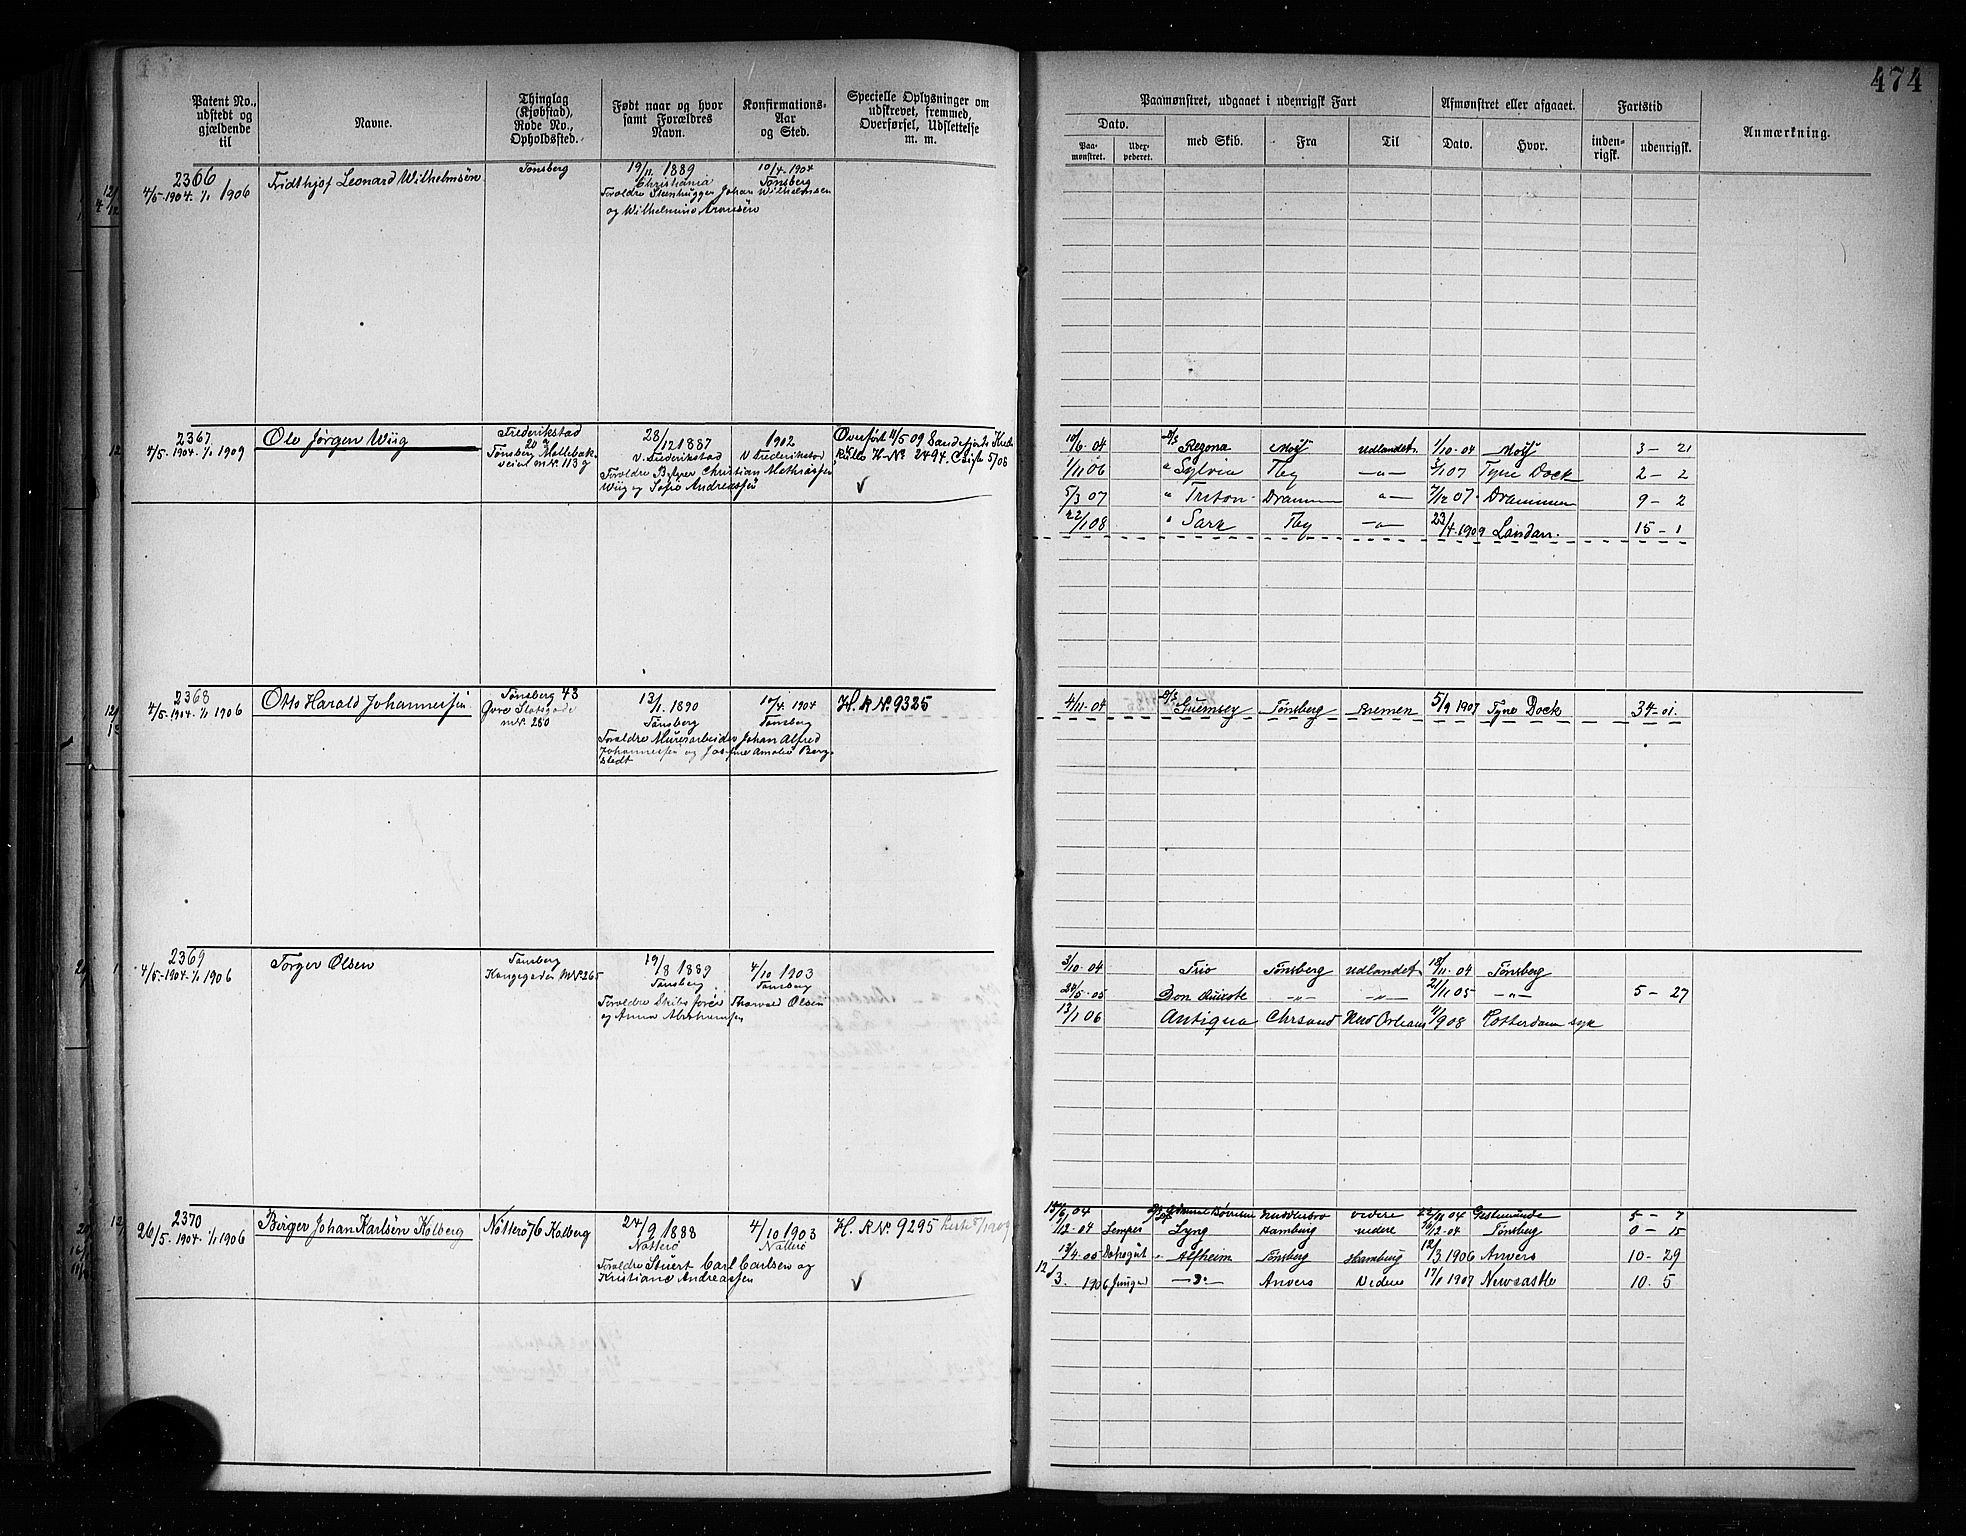 474
Patent No., udstedt og gjældende til
Navne.
Thinglag (Kjøbstad), Rode No., Opholdssted.
Født naar og hvor samt Forældres Navn.
Konfirmations-Aar og Sted.
Specielle Oplysninger om udskrevet, fremmed, Overførsel, Udslettelse m. m.
Paamønstret, udgaaet i udenrigsk Fart
Afmønstret eller afgaaet.
Fartstid
Anmærkning.
Dato.
Paa-mønstret.
Udex-pederet.
med Skib.
Fra
Til
Dato.
Hvor.
inden-rigsk.
udenrigsk.
2366
4/5-1904. 1/1 1906
Fridthjof Leonard Wilhelmsen
Tønsberg
19/11 1889
Christiania
Forældre Stenhugger Johan Wilhelmsen
og Wilhelmine Aronsen
10/4 1904
Tønsberg
2367
4/5-1904. 1/1 1909
Ole Jørgen Wiig
Frederikstad
Tønsberg Møllebak-
veien mN. 113 g
28/12 1887
v. Frederikstad
Forældre Christian Mathiassen
Wiig og Andreassen
1902
v Frederikstad
Overført 11/5 09 Sandefjords
Rulle H-No 2494. 5/08
10/6-04 D/S Regona Moss Udlandet 1/10-04 Moss 3 - 21
1/11 06 " Sylvia Tbg -"- 07 Tyne Dock 2 - 2
5/3 07 " Triton Drammen -"- 7/12 07 Drammen 9 - 2
22/1 08 " Tbg -"- 23/4 1909 15 - 1
2368
4/5-1904-1/1 1906
Otto Harald Johannessen
Tønsberg 43
Øvre Slotsgade
mN. 250
13/1 1890
Tønsberg
Forældre Murerarbeider Johan Alfred
Johannessen og Josefine Amalie Berg-
stedt
10/4 1904
Tønsberg
H. R No. 9325
4/11-04 D/S Guernsey Tønsberg Bremen 5/9 1907 Tyne Dock 34-01.
2369
4/5-1904-1/1 1906
Torger Olsen
Tønsberg
Kongegaden mN. 265
19/8 1889
Tønsberg
Forældre Skibsfører Thorvald Olsen
og Anna Abrahamsen
4/10 1903
Tønsberg
3/10-04 Trio Tønsberg Udlandet 18/11-04 Tønsberg
24/5-05 Don Quixote -"- -"- 21/11 05 -"- 5 - 27
13/1 06 Antiqua Chrsand New Orleans 9 08 Rotterdam syk
2370
26/5-1904-1/1 1906
Birger Johan Karlsen Kolberg
Nøtterø 76 Kolberg
24/9 1888
Nøtterø
Forældre Stuert Carl Carlsen og
Kristiane Andreassen
4/10 1903
Nøtterø
H. R No. 9295
15/6 04 videre 22/11 04 Gestemünde 5 - 7
1/12-04 Lyng Hamburg videre 16/12-04 Tønsberg 0 - 15
13/4-05 " Alfheim Tønsberg Hamburg 12/3 1906 Anvers 10 - 29
12/3. 1906 -"- Anvers Videre 17/1 1907 Newcastle 10. 5